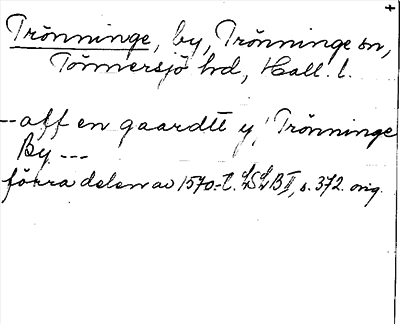 +
Trönninge, by, Trönninge sn,
Tönnersjö hd, Hall. l.
--aff en gaardtt y, Trönninge
By ---
förra delen av 1570-t. LSLB II, s. 372. orig.